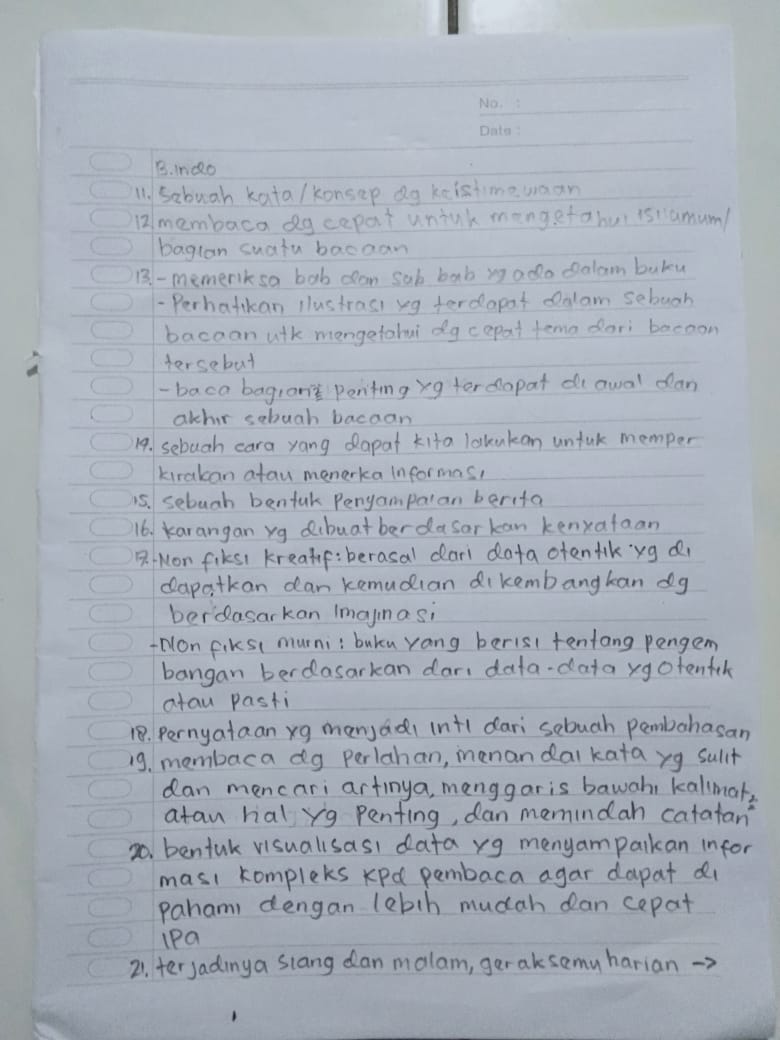 No. :
Date :
B. Indo
11. Sebuah kata/konsep dg keistimewaan
12 membaca dg cepat untuk mengetahui isi umum/
bagian suatu bacaan
13. - memeriksa bab dan sub bab yg ada dalam buku
- Perhatikan ilustrasi yg terdapat dalam sebuah
bacaan utk mengetahui dg cepat tema dari bacaan
tersebut
- baca bagian² penting yg terdapat di awal dan
akhir sebuah bacaan
14. sebuah cara yang dapat kita lakukan untuk memper
kirakan atau menerka informasi
15. sebuah bentuk Penyampaian berita
16. karangan yg dibuat berdasarkan kenyataan
17. - Non fiksi kreatif : berasal dari data otentik yg di
dapatkan dan kemudian dikembangkan dg
berdasarkan imajinasi
- Non fiksi murni : buku yang berisi tentang pengem
bangan berdasarkan dari data-data yg otentik
atau pasti
18. Pernyataan yg menjadi inti dari sebuah pembahasan
19. membaca dg perlahan, menandai kata yg sulit
dan mencari artinya, menggaris bawahi kalimat²
atau hal yg penting, dan memindah catatan
20. bentuk visualisasi data yg menyampaikan infor
masi kompleks kpd pembaca agar dapat di
pahami dengan lebih mudah dan cepat
IPA
21. terjadinya siang dan malam, gerak semu harian ->